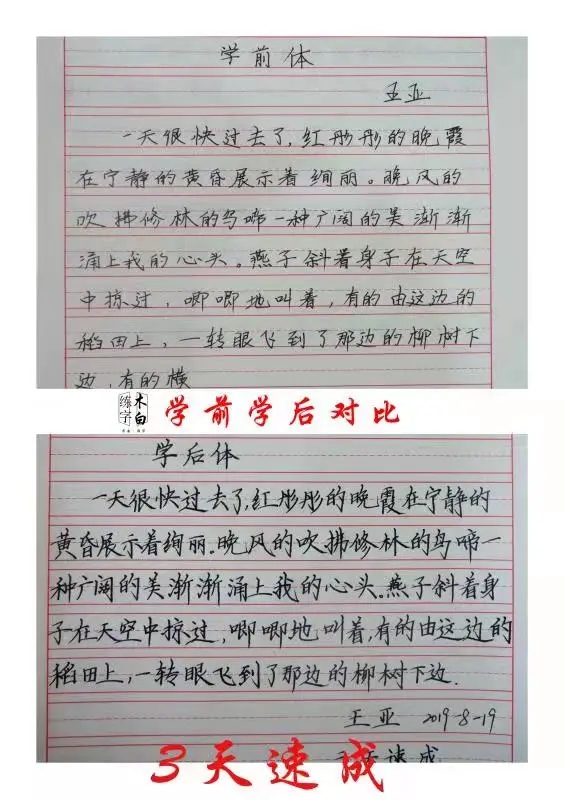 学前体
王亚
一天很快过去了,红彤彤的晚霞
在宁静的黄昏展示着绚丽。晚风的
吹拂修林的鸟啼一种广阔的美渐渐
涌上我的心头。燕子斜着身子在天空
中掠过，唧唧地叫着，有的由这边的
稻田上，一转眼飞到了那边的柳树下
边，有的横
练字
木白
学前学后对比
学后体
一天很快过去了,红彤彤的晚霞在宁静的
黄昏展示着绚丽.晚风的吹拂修林的鸟啼一
种广阔的美渐渐涌上我的心头.燕子斜着身
子在天空中掠过,唧唧地叫着,有的由这边的
稻田上,一转眼飞到了那边的柳树下边.
王亚 2019-8-19
3天速成